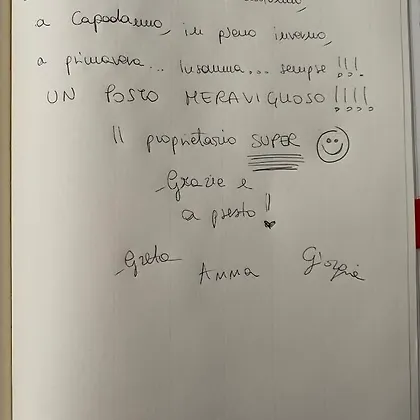 a Capodanno, in pieno inverno,
a primavera... Insomma... sempre !!!
UN POSTO MERAVIGLIOSO !!!!
Il proprietario SUPER
Grazie e
a presto!
Greta Anna Giorgia